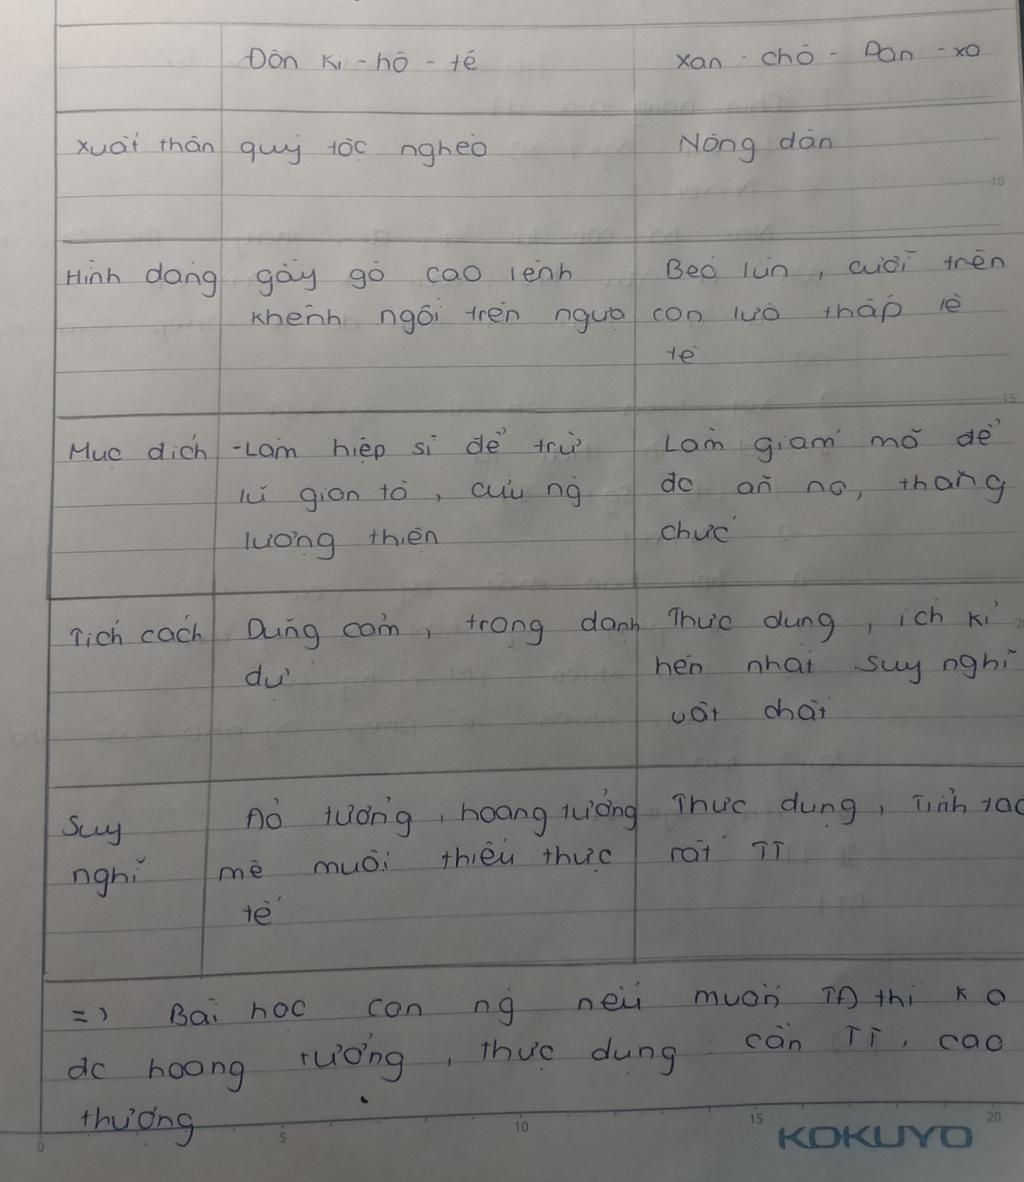 Đôn Ki - hô - tê Xan - chô - Pan - xa
Xuất thân quý tộc nghèo Nông dân
Hình dáng gầy gò cao lênh Béo lùn, cưỡi trên
khênh ngồi trên ngựa con lừa thấp lè
tè
Mục đích -Làm hiệp sĩ để trừ Làm giám mã để
lũ gian tà, cứu ng đc ăn no, thăng
lương thiện chức
Tích cách Dũng cảm, trọng danh Thực dụng, ích kỉ
dự hèn nhát suy nghĩ
vật chất
Suy Ảo tưởng, hoang tưởng Thực dụng, Tỉnh táo
nghĩ mê muội thiếu thực rất TT
tế
=) Bài học con ng nếu muốn TĐ thì k o
đc hoang tưởng, thực dụng cần TT, cao
thượng
10
15
20
0 5 10 15 20
KOKUYO